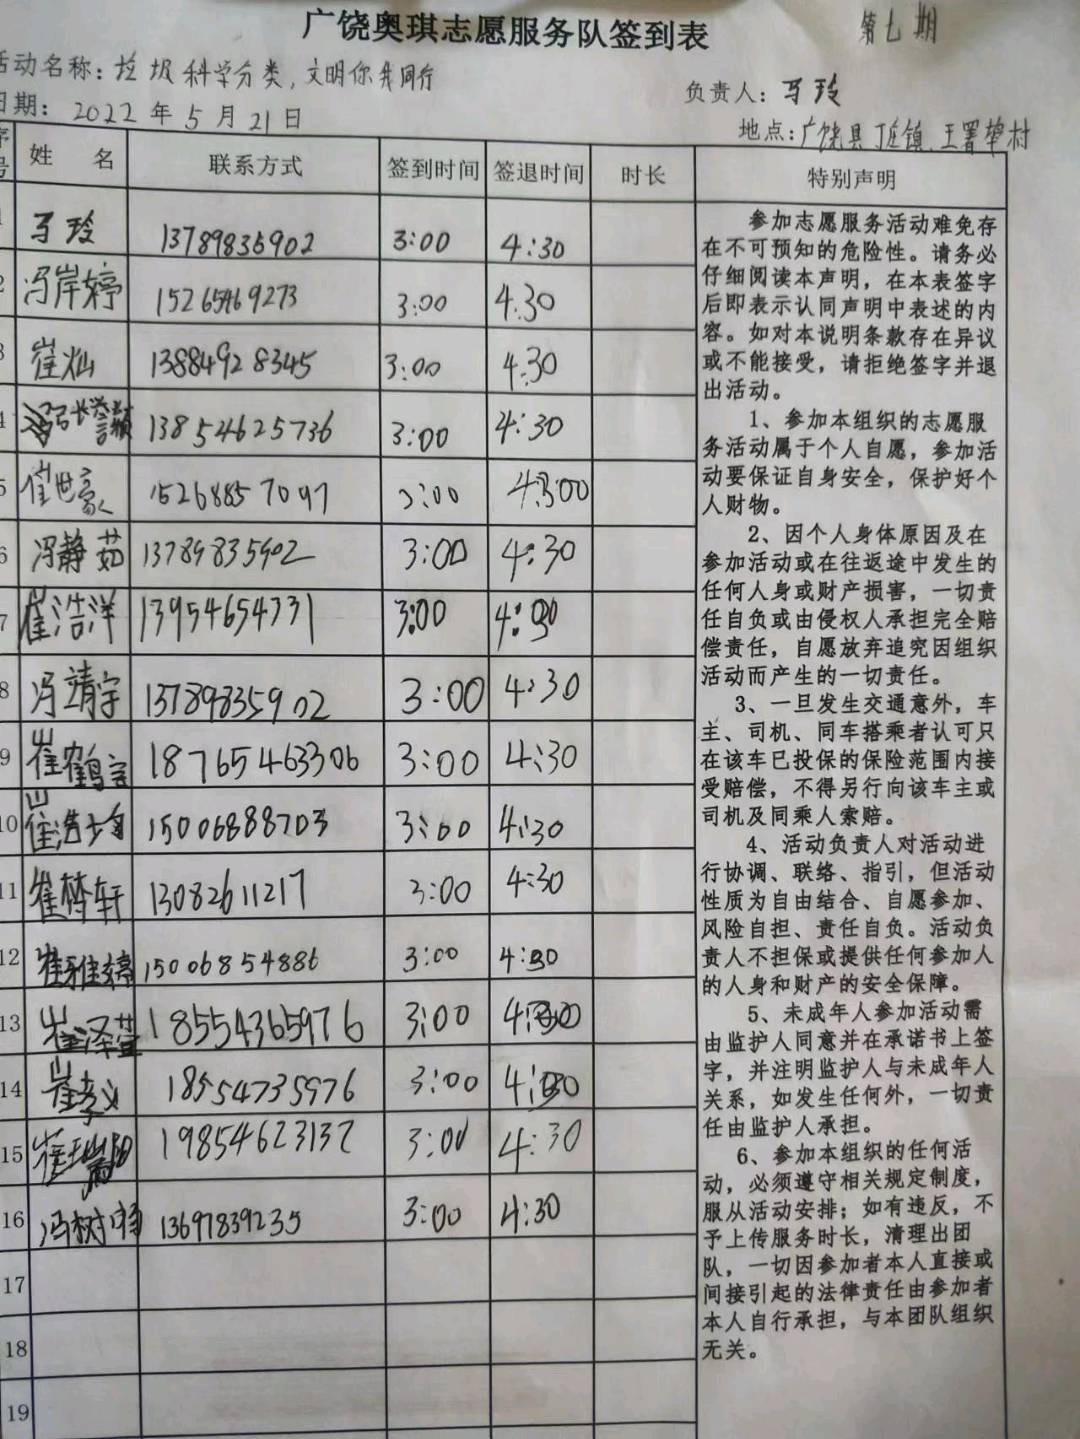 广饶奥琪志愿服务队签到表
第七期
活动名称：垃圾科学分类，文明你我同行
负责人：马玲
日期：2022年5月21日
地点：广饶县丁庄镇王署埠村
序号 姓名 联系方式 签到时间 签退时间 时长 特别声明
1 马玲 13789835902 3:00 4:30
2 冯岸婷 15265469273 3:00 4:30
3 崔灿 13884928345 3:00 4:30
4 13854625736 3:00 4:30
5 崔世豪 15268857097 3:00 4:300
6 冯静茹 13789835902 3:00 4:30
7 崔浩洋 13954654731 3:00 4:30
8 冯靖宇 13789835902 3:00 4:30
9 崔鹤宝 18765463306 3:00 4:30
10 15006888703 3:00 4:30
11 崔梓轩 13082611217 3:00 4:30
12 崔雅婷 15006854886 3:00 4:30
13 崔泽萱 18554365976 3:00 4:30
14 崔孝义 18554735976 3:00 4:30
15 19854623132 3:00 4:30
16 冯树 13697839235 3:00 4:30
17
18
19
参加志愿服务活动难免存
在不可预知的危险性。请务必
仔细阅读本声明，在本表签字
后即表示认同声明中表述的内
容。如对本说明条款存在异议
或不能接受，请拒绝签字并退
出活动。
1、参加本组织的志愿服
务活动属于个人自愿，参加活
动要保证自身安全，保护好个
人财物。
2、因个人身体原因及在
参加活动或在往返途中发生的
任何人身或财产损害，一切责
任自负或由侵权人承担完全赔
偿责任，自愿放弃追究因组织
活动而产生的一切责任。
3、一旦发生交通意外，车
主、司机、同车搭乘者认可只
在该车已投保的保险范围内接
受赔偿，不得另行向该车主或
司机及同乘人索赔。
4、活动负责人对活动进
行协调、联络、指引，但活动
性质为自由结合、自愿参加、
风险自担、责任自负。活动负
责人不担保或提供任何参加人
的人身和财产的安全保障。
5、未成年人参加活动需
由监护人同意并在承诺书上签
字，并注明监护人与未成年人
关系，如发生任何外，一切责
任由监护人承担。
6、参加本组织的任何活
动，必须遵守相关规定制度，
服从活动安排；如有违反，不
予上传服务时长，清理出团
队，一切因参加者本人直接或
间接引起的法律责任由参加者
本人自行承担，与本团队组织
无关。